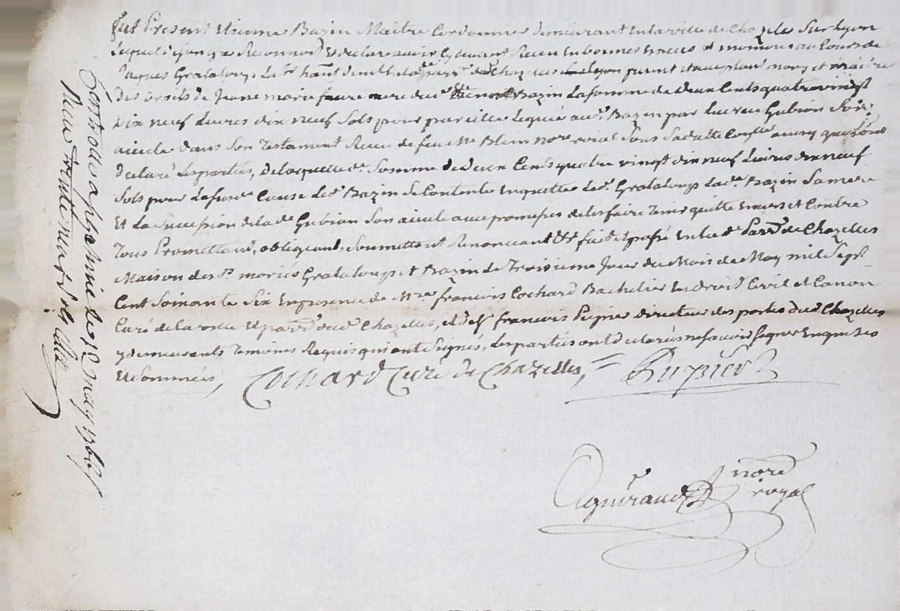 fut Present Etienne Bazin Maitre Cordonnier demeurant en la ville de Chazelles Sur Lyon
lequel Reconnoit et declare avoir cy devant Receu en bonnes especes et monnoie au Cours de
Jacques Grataloup hant dud Chazelles present et acceptant mary et maitre
des droits de Jeanne marie faure mere dud Etienne Bazin La somme de deux Cents quatre vingt
dix neuf Livres dix neuf Sols pour pareille Leguée aud Bazin par Lucresse Gubian Son
aieule dans Son Testament Receu de feu Me Blein nore roial Sous Sa datte
declaré Les parties, de laquelle de Somme de deux Cents quatre vingt dix neuf Livres dix neuf
Sols pour La susde Cause Led Bazin Se Contente en quitte Led Grataloup Lade Bazin Sa mere
Et La Succession de lade Gubian Son aieule avec promesses de les faire Tenir quitte envers et Contre
Tous Promettant, obligeant, Soumettant Renonceant &c fait et passé en lade Parre de Chazelles
Maison des mariés Grataloup et Bazin Le Troisieme Jour du Mois de May mil Sept
Cent Soixante Six En presence de Mre francois Cochard Bachelier en droit Civil et Canon
Curé de la ville et parre dud Chazelles, et de Sr francois Pupier directeur des postes dud Chazelles
y demeurants Temoins Requis qui ont Signés, Les parties ont declarés ne scavoir Signer Enquis
et Sommés,
Cochard Curé de Chazelles,
Pupier
nore
royal
Controllé a le 12 may 1766
Receu trente neuf sols